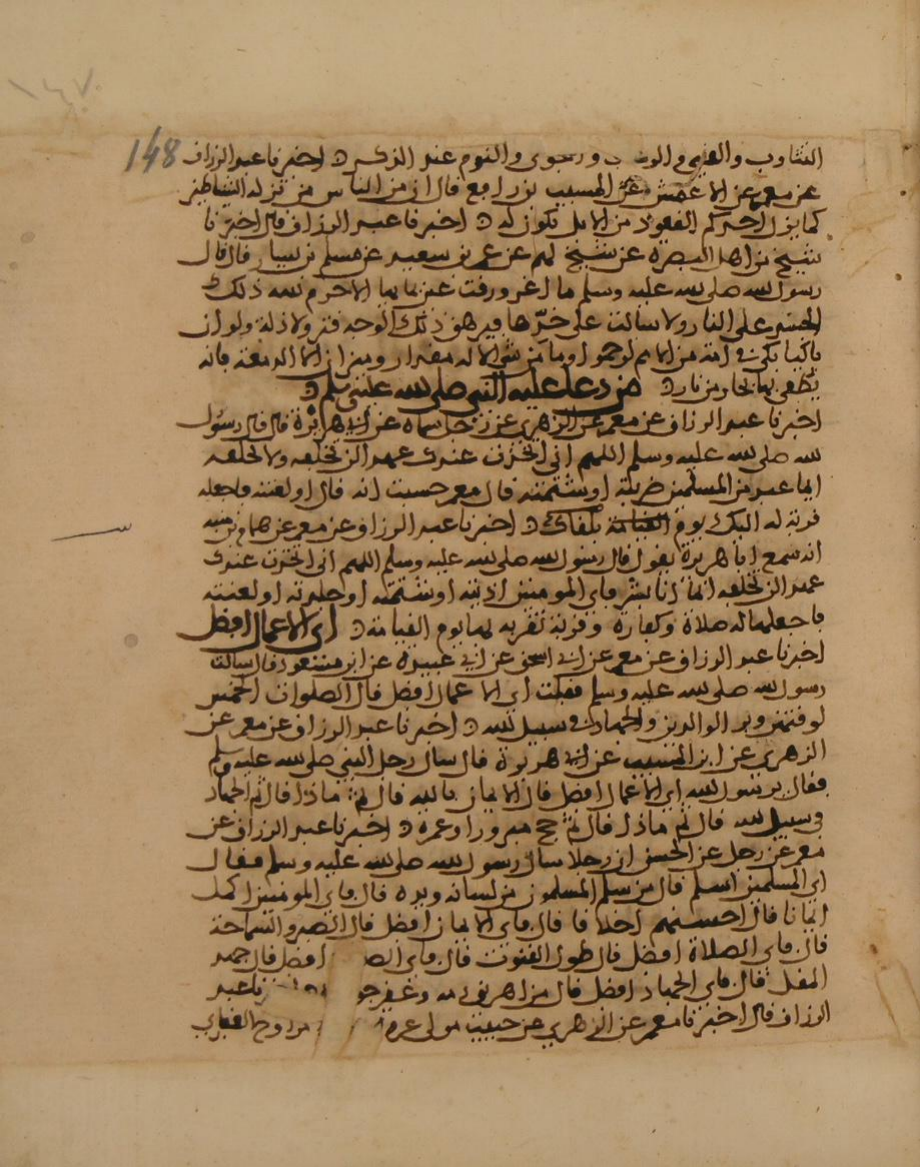 ١٤٧
148
التثاوب والقيء والنجوى والنوم عند الذكر اخبرنا عبد الرزاق
عن معمر عن الاعمش عن المسيب بن رافع قال ان من الناس من تزله الشياطين
كما احدكم القعود من الابل تكون له اخبرنا عبد الرزاق قال اخبرنا
شيخ من اهل البصرة عن شيخ لهم عن عمر بن سعيد عن مسلم بن يسار قال قال
رسول الله صلى الله عليه وسلم ما اغرورقت عين بمايها الا حرم الله ذلك
الجسد على النار ولا سالت على خدها فيرهق ذلك الوجه قتر ولا ذلة ولو ان
باكيا بكى في امة من الامم لرحموا وما من شي الا له مقدار وميزان الا الدمعة فانه
يطفى بها بحار من نار من دعا عليه النبي صلى الله عليه وسلم
اخبرنا عبد الرزاق عن معمر عن الزهري عن رجل سماه عن ابي هريرة قال قال رسول
الله صلى الله عليه وسلم اللهم اني اتخذت عندك عهدا لن تخلفه ولا تخلفه
ايما عبد من المسلمين ضربته او شتمته قال معمر حسبت انه قال او لعنته فاجعله
قربة له اليك يوم القيامة يلقاك اخبرنا عبد الرزاق عن معمر عن همام بن منبه
انه سمع ابا هريرة يقول قال رسول الله صلى الله عليه وسلم اللهم اني اتخذت عندك
عهدا لن تخلفه انما انا بشر فاي المومنين اذيته او شتمته او جلدته او لعنته
فاجعلها له صلاة وكفارة وقربة تقربه بها يوم القيامة اي الاعمال افضل
اخبرنا عبد الرزاق عن معمر عن ابي اسحق عن ابي عبيدة عن ابن مسعود قال سالت
رسول الله صلى الله عليه وسلم فقلت اي الاعمال افضل قال الصلوات الخمس
لوقتهن وبر الوالدين والجهاد في سبيل الله اخبرنا عبد الرزاق عن معمر عن
الزهري عن ابن المسيب عن ابي هريرة قال سال رجل النبي صلى الله عليه وسلم
فقال يرسول الله اي الاعمال افضل قال الايمان بالله قال ثم ماذا قال ثم الجهاد
في سبيل الله قال ثم ماذا قال ثم حج مبرور او عمرة اخبرنا عبد الرزاق عن
معمر عن رجل عن الحسن ان رجلا سال رسول الله صلى الله عليه وسلم فقال
اي المسلمين اسلم قال من سلم المسلمون من لسانه ويده قال فاي المومنين اكمل
ايمانا قال احسنهم اخلاقا قال فاي الايمان افضل قال الصبر والسماحة
قال فاي الصلاة افضل قال طول القنوت قال فاي الصد افضل قال جهد
المقل قال فاي الجهاد افضل قال من اهريق دمه وعقر جو نا عبد
الرزاق قال اخبرنا معمر عن الزهري عن حبيب مولى عروة الغفاري